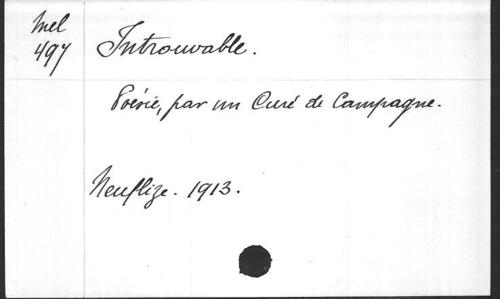 Mel
497
Introuvable.
Poésie, par un Curé de Campagne.
Neuflize. 1913.